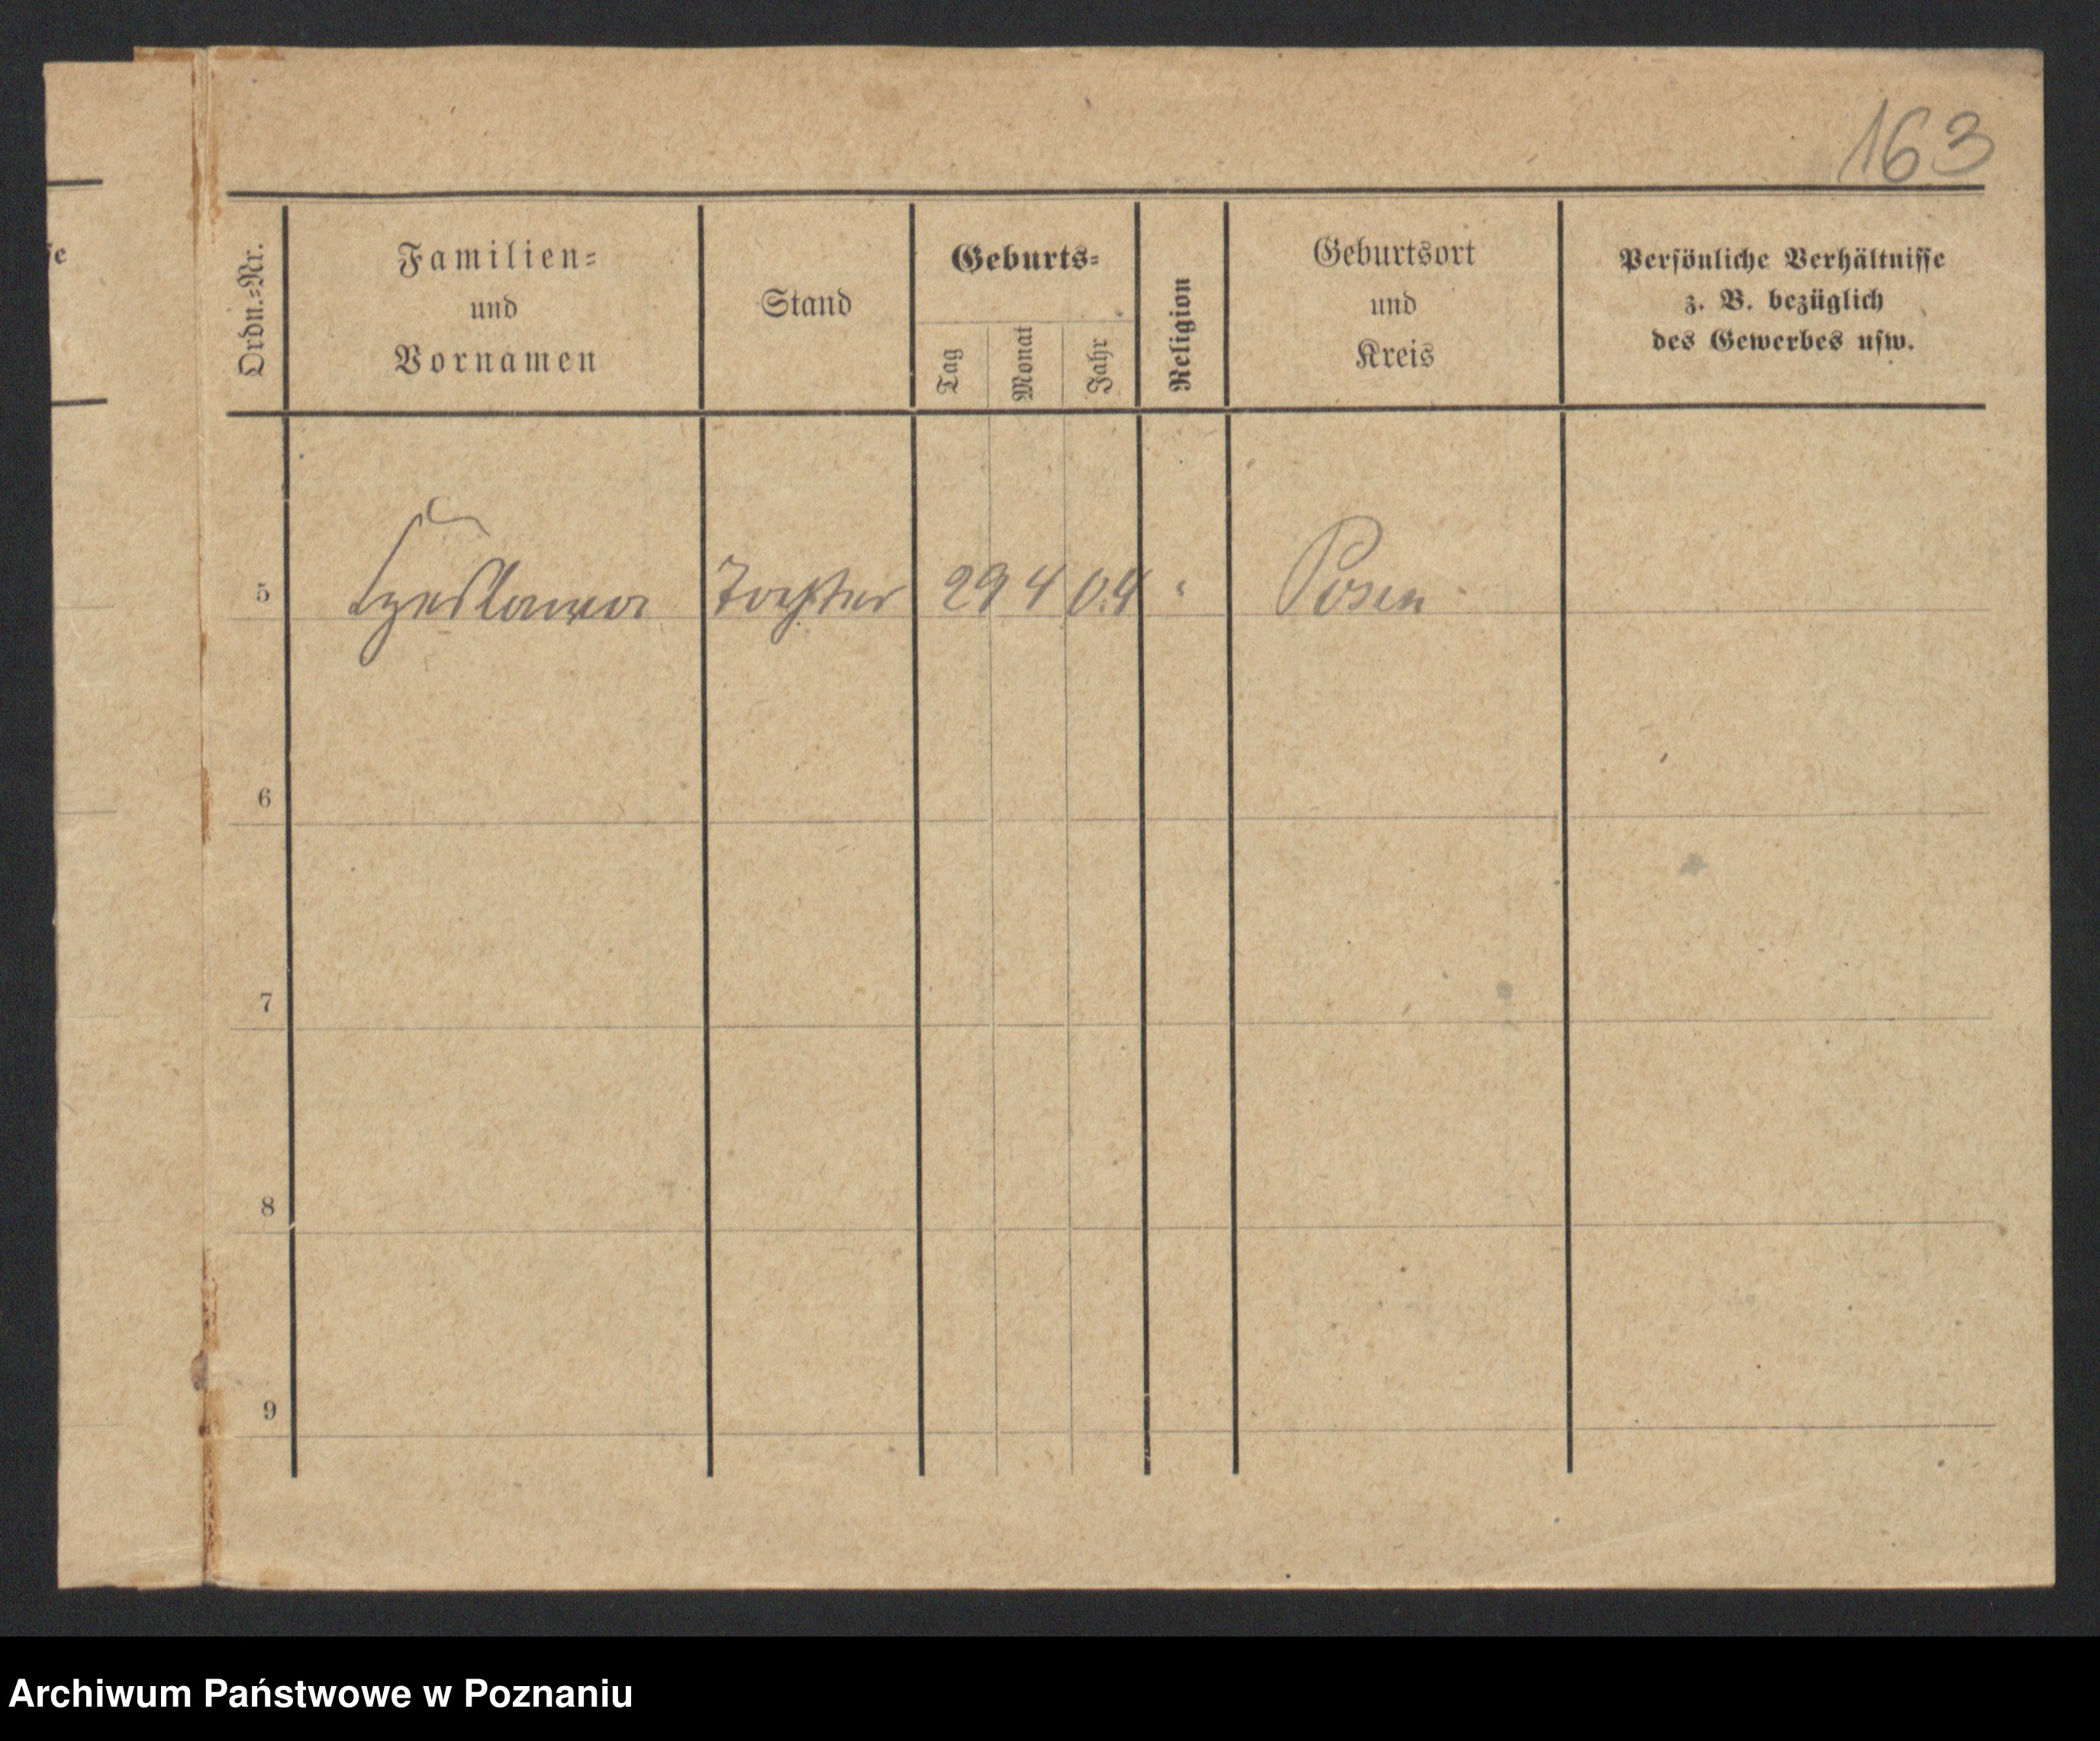 163
fe
Ordn.=Nr.
Familien=
und
Vornamen
Stand
Geburts=
Tag
Monat
Jahr
Religion
Geburtsort
und
Kreis
Persönliche Verhältnisse
z. B. bezüglich
des Gewerbes usw.
5 Czeslawa Tochter 29 4 04 " Posen
6
7
8
9
Archiwum Państwowe w Poznaniu